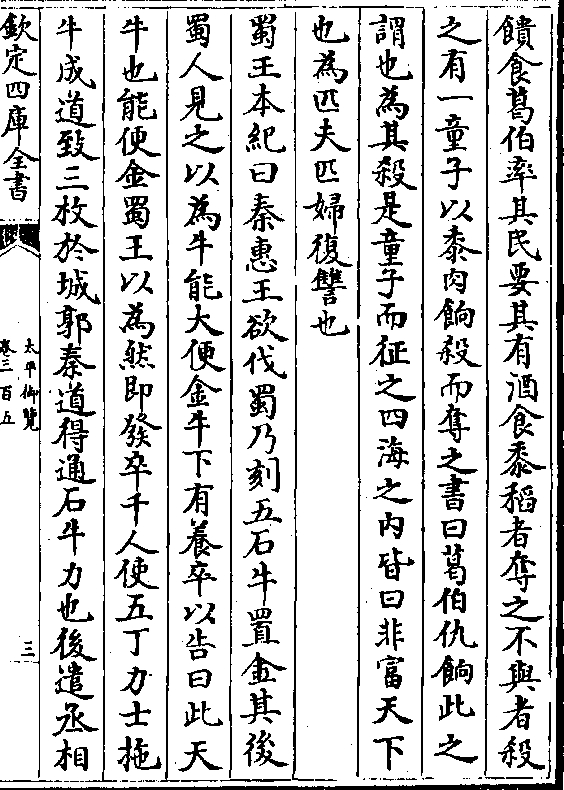 饋食葛伯率其民要其有酒食黍稻者奪之不與者殺
之有一童子以黍肉餉殺而奪之書曰葛伯仇餉此之
謂也為其殺是童子而征之四海之内皆曰非富天下
也為匹夫匹婦復讐也
蜀王本紀曰秦惠王欲伐蜀乃刻五石牛置金其後
蜀人見之以為牛能大便金牛下有養卒以告曰此天
牛也能便金蜀王以為然即發卒千人使五丁力士拖
牛成道致三枚於城郭秦道得通石牛力也後遣丞相
欽定四庫全書
太平御覽
卷三百五
三